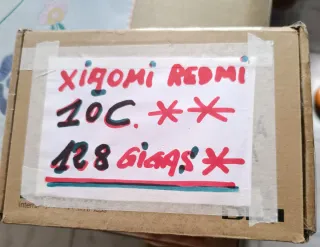 XiaOMi REDMI
10C. **
128 GiGAS *